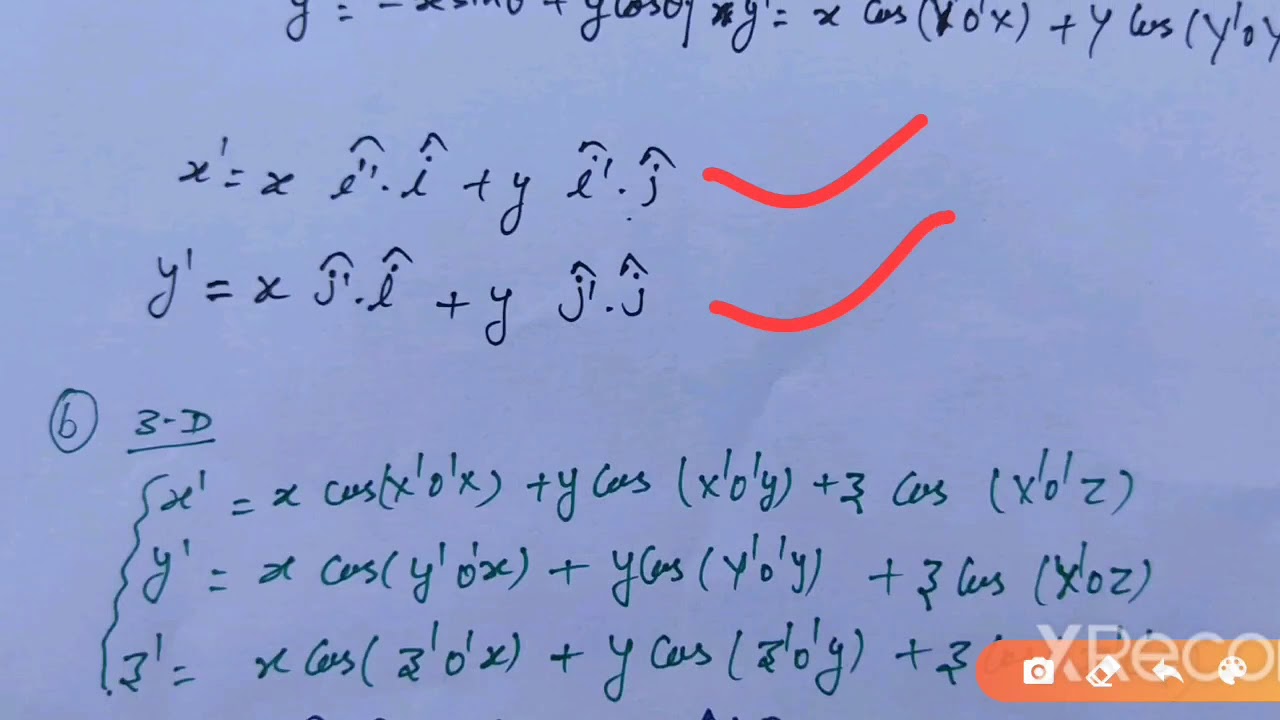 y' = -x sinθ + y cosθ y' = x cos(Y'O'X) + y cos(Y'OY
x' = x î'·î + y î'·ĵ
y' = x ĵ'·î + y ĵ'·ĵ
(b) 3-D
x' = x cos(x'o'x) + y cos (x'o'y) + z cos (x'o'z)
y' = x cos(y'o'x) + y cos(y'o'y) + z cos (y'oz)
z' = x cos(z'o'x) + y cos(z'o'y) + z
XRecor